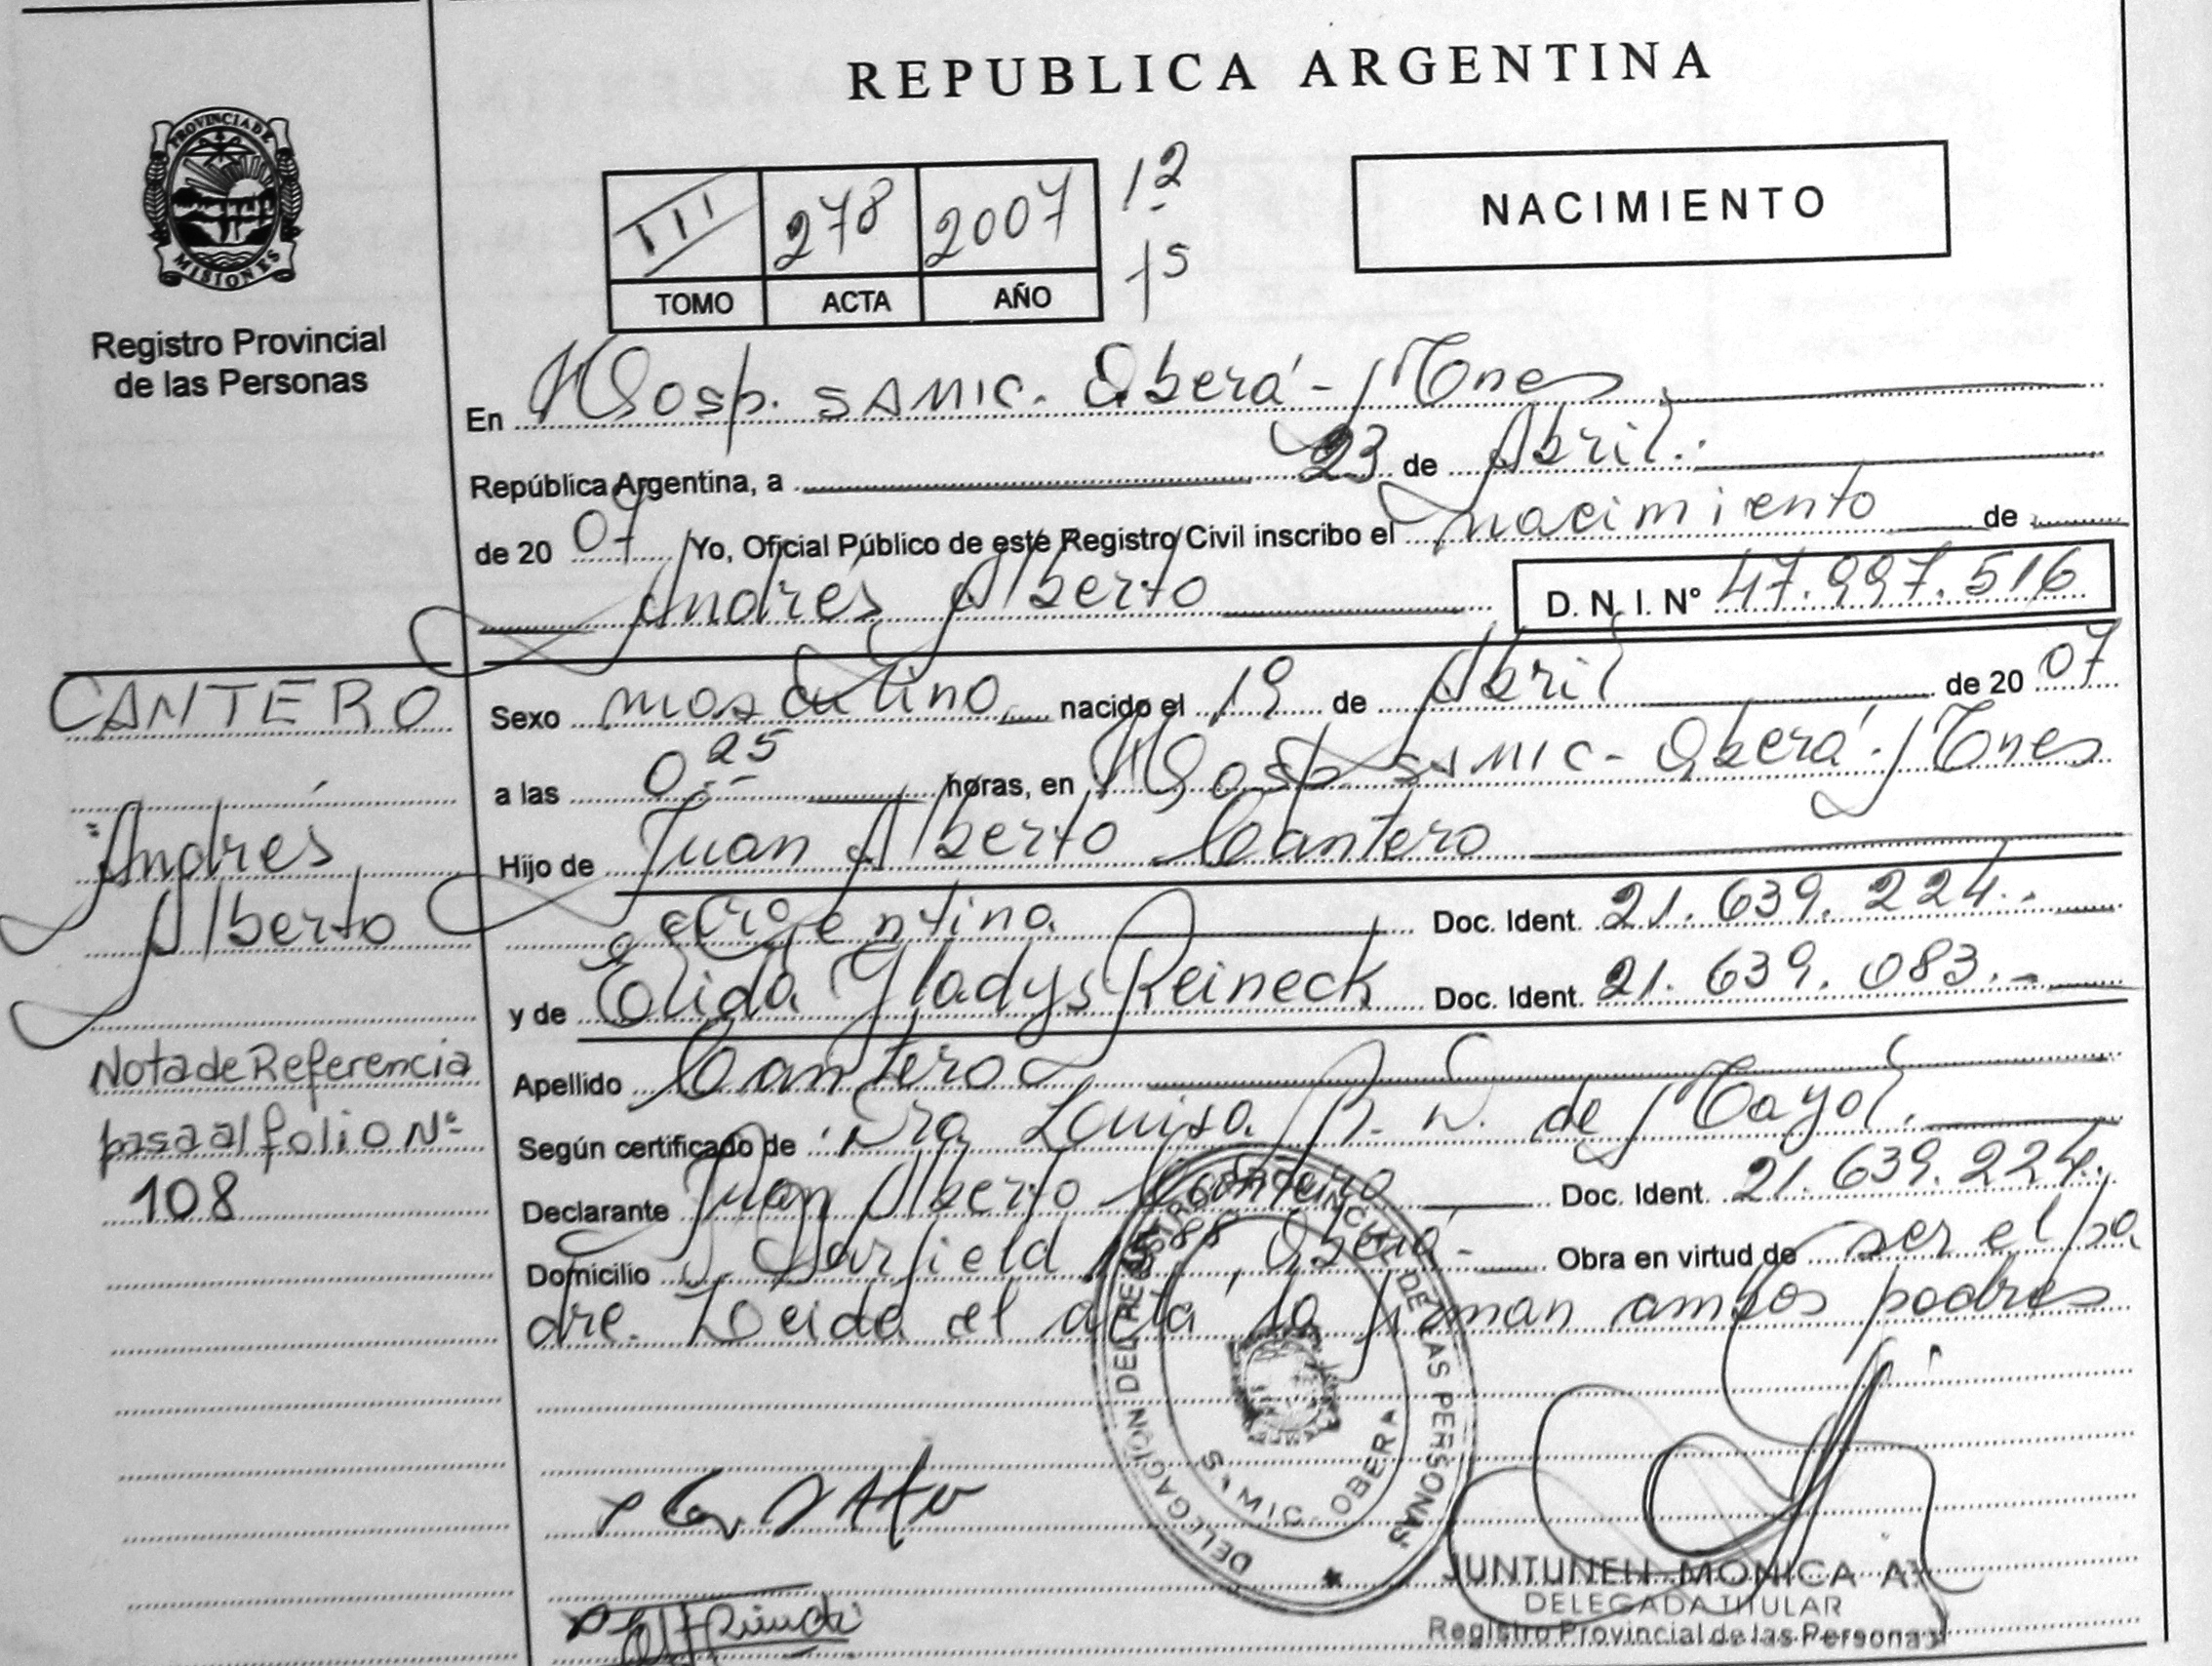 REPUBLICA ARGENTINA
PROVINCIA DE MISIONES
Registro Provincial
de las Personas
III 278 2007
TOMO ACTA AÑO
12
15
NACIMIENTO
En Hosp. SAMIC. Oberá - Mnes
República Argentina, a 23 de Abril.
de 20 07 Yo, Oficial Público de este Registro Civil inscribo el nacimiento de
Andrés Alberto D. N. I. N° 47.997.516
CANTERO
Andrés
Alberto
Nota de Referencia
pasa al folio Nº
108
Sexo masculino nacido el 19 de Abril de 20 07
a las 0.25 horas, en Hosp SAMIC - Oberá - Mnes
Hijo de Juan Alberto Cantero
argentino Doc. Ident. 21.639.224.-
y de Elida Gladys Reineck Doc. Ident. 21.639.083.-
Apellido Cantero
Según certificado de Dra Louisa R. N. de Mayol.
Declarante Juan Alberto Cantero Doc. Ident. 21.639.224.
Domicilio Oberá - Obra en virtud de ser el pa
dre. Leida el acta la firman ambos padres
DELEGACIÓN DEL REGISTRO PROVINCIAL DE LAS PERSONAS
SAMIC - OBERA
JUNTUNEN MONICA A.
DELEGADA TITULAR
Registro Provincial de las Personas